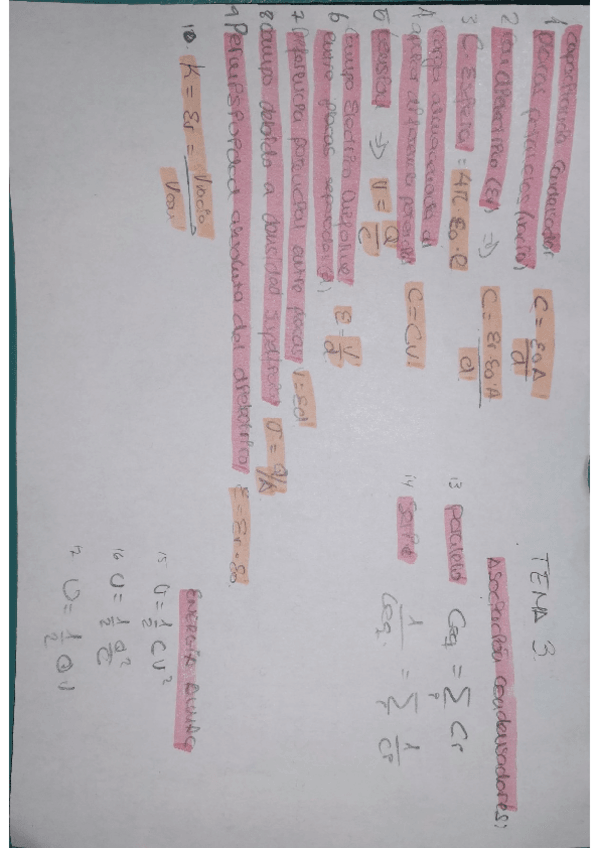 TEMA 3
1 capacitancia condensador
placas paralelas (vacío) C = ε0 A / d
2 con dieléctrico (εr) ⇒ C = εr · ε0 · A / d
3 C. Esfera = 4π · ε0 · R
4 carga acumulada
aplicar diferencia potencial C = CV
5 tensión ⇒ V = Q / C
6 campo eléctrico
entre placas separadas d E = V / d
7 Diferencia potencial entre placas V = Ed
8 campo debido a densidad superficial σ = Q/A
9 Permisividad absoluta del dieléctrico ε = εr · ε0
10. K = εr = Vvacío / Vcon
Asociación condensadores:
13 paralelo Ceq = Σ Ci
i
14 Serie 1 / Ceq. = Σ 1 / Ci
i
15 U = 1/2 CV²
16 U = 1/2 Q² / C
17 U = 1/2 QV